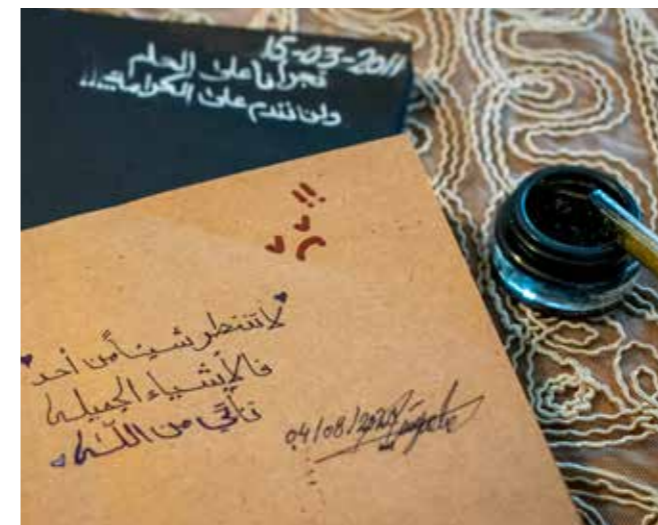 15-03-2011
تجرأنا على الحلم
ولن نندم على الكرامة!!
!!
لا تنتظر شيئاً من أحد
فالأشياء الجميلة
تأتي من اللّٰه
04/08/2020